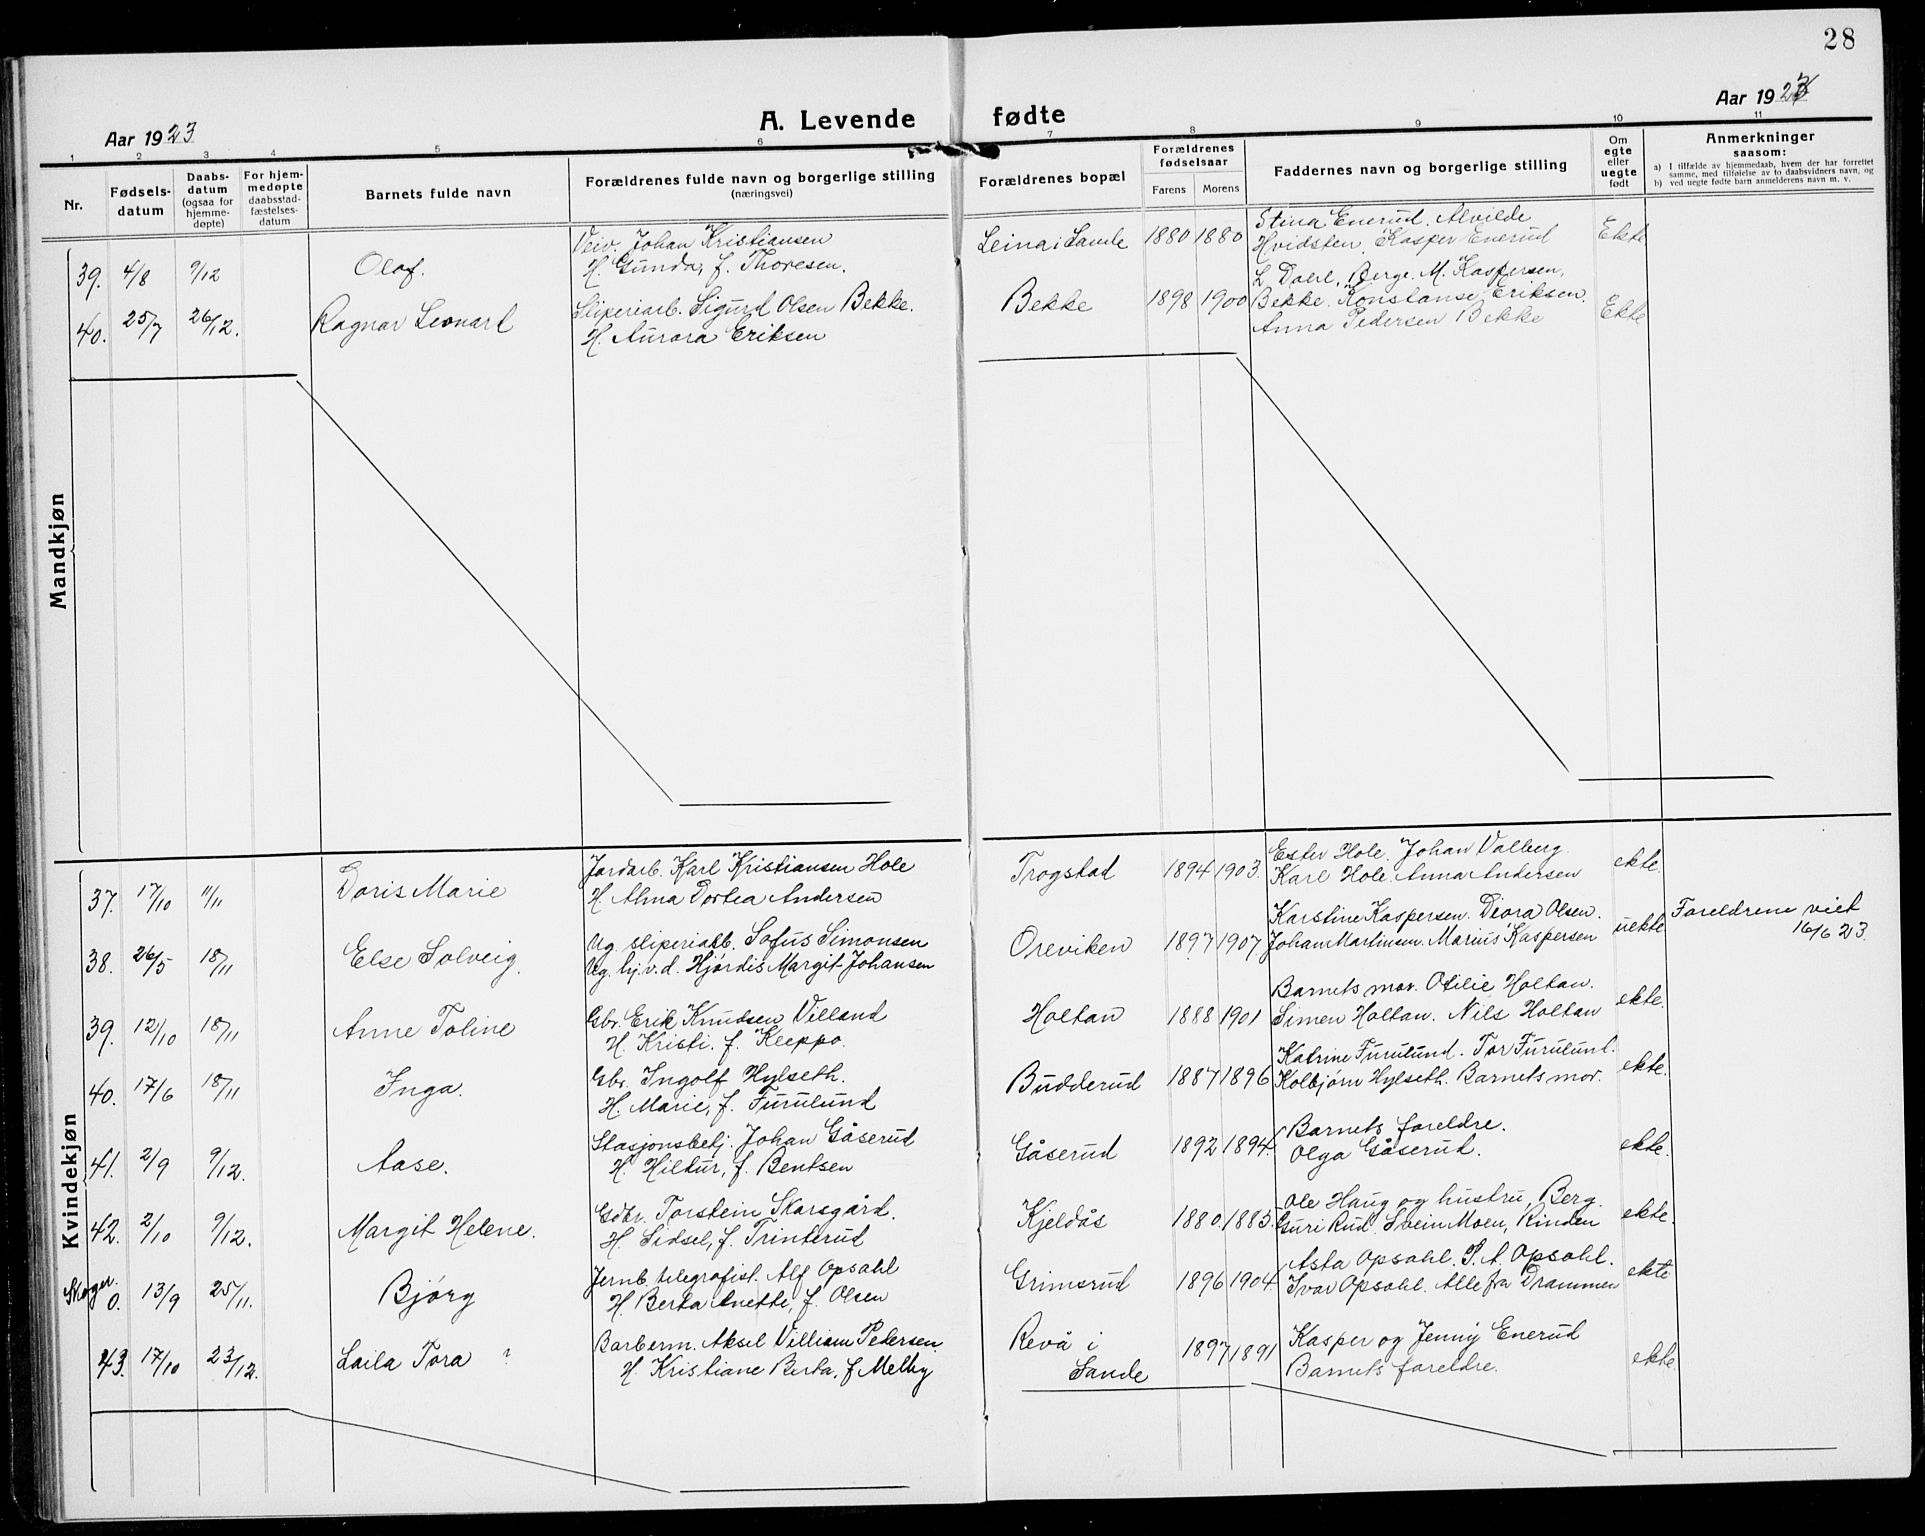 28
Aar 1923
A. Levende fødte
Aar 1923
1 2 3 4 5 6 7 8 9 10 11
Nr.
Fødsels-
datum
Daabs-
datum
(ogsaa for
hjemme-
døpte)
For hjem-
medøpte
daabsstad-
fæstelses-
datum
Barnets fulde navn
Forældrenes fulde navn og borgerlige stilling
(næringsvei)
Forældrenes bopæl
Forældrenes
fødselsaar
Farens Morens
Faddernes navn og borgerlige stilling
Om
egte
eller
uegte
født
Anmerkninger
saasom:
a) I tilfælde av hjemmedaab, hvem der har forrettet
samme, med tilføielse av to daabsvidners navn, og
b) ved uegte fødte barn anmelderens navn m. v.
Mandkjøn
39. 4/8 9/12 Olaf.
Veiv. Johan Kristiansen
H. Gunda, f. Thoresen.
Leina i Sande 1880 1880
Stina Enerud. Alvilde
Hvidsten. Kasper Enerud
Ekte
40. 25/7 26/12. Ragnar Leonart
Sliperiarb. Sigurd Olsen Bekke.
H. Aurora Eriksen
Bekke 1898 1900
L. Daerl, Berge. M. Kaspersen,
Bekke. Konstanse Eriksen.
Anna Pedersen Bekke
Ekte
Kvindekjøn
37. 17/10 11/11 Doris Marie
Jordarb. Karl Kristiansen Hole
H. Alma Dortea Andersen
Trogstad 1894 1903.
Ester Hole. Johan Valberg.
Karl Hole. Anna Andersen
ekte.
38. 26/5 18/11 Else Solveig.
Ug. sliperiarb. Sofus Simonsen
Ug. hj.v.d. Hjørdis Margit Johansen
Oreviken 1897 1907.
Karstine Kaspersen. Diora Olsen.
Johan Martinsen. Marius Kaspersen
uekte
Foreldrene viet
16/6 23.
39. 12/10 18/11 Anne Toline
Gbr. Erik Knudsen Villand
H. Kristi. f. Kleppo.
Holtan 1888 1901
Barnets mor. Otilie Holtan.
Simen Holtan. Nils Holtan
ekte.
40. 17/6 18/11 Inga.
Gbr. Ingolf Hylseth.
H. Marie, f. Furulund
Budderud 1887 1896
Katrine Furulund. Tor Furulund.
Kolbjørn Hylseth. Barnets mor.
ekte.
41. 2/9 9/12. Aase.
Stasjonsbetj. Johan Gåserud
H. Hildur, f. Bentsen
Gåserud 1892 1894.
Barnets foreldre.
Olga Gåserud.
ekte.
42. 2/10 9/12. Margit Helene.
Gdbr. Torstein Skarsgård.
H. Sidsel, f. Trinterud
Kjeldås 1880. 1885.
Ole Haug og hustru, Berg.
Guri Rud. Svein Moen, Rinden
ekte.
Skoger.
0. 13/9 25/11. Bjørg
Jernb. telegrafist. Alf Opsahl
H. Berta Anette, f. Olsen
Grimsrud 1896 1904.
Asta Opsahl. P. A. Opsahl.
Ivar Opsahl. Alle fra Drammen
ekte
43. 17/10 23/12. Laila Tora ?
Barberm. Aksel Villiam Pedersen
H. Kristiane Berta, f. Melby
Revå i
Sande
1897 1891
Kasper og Jenny Enerud
Barnets foreldre.
ekte.